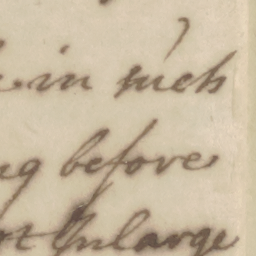 in such
before
Inlarge